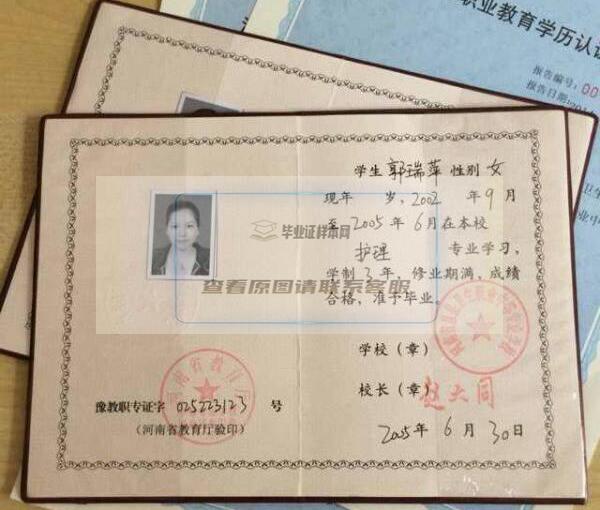 职业教育学历认证
报告编号:
报告日期:
学生 郭瑞萍 性别 女
现年 岁,2002 年 9 月
至 2005 年 6 月在本校
护理 专业学习,
学制 3 年,修业期满,成绩
合格,准予毕业。
毕业证样本网
查看原图请联系客服
学校(章)
校长(章) 赵大同
河南省教育厅
豫教职专证字 025223123 号
(河南省教育厅验印)
2005 年 6 月 30 日